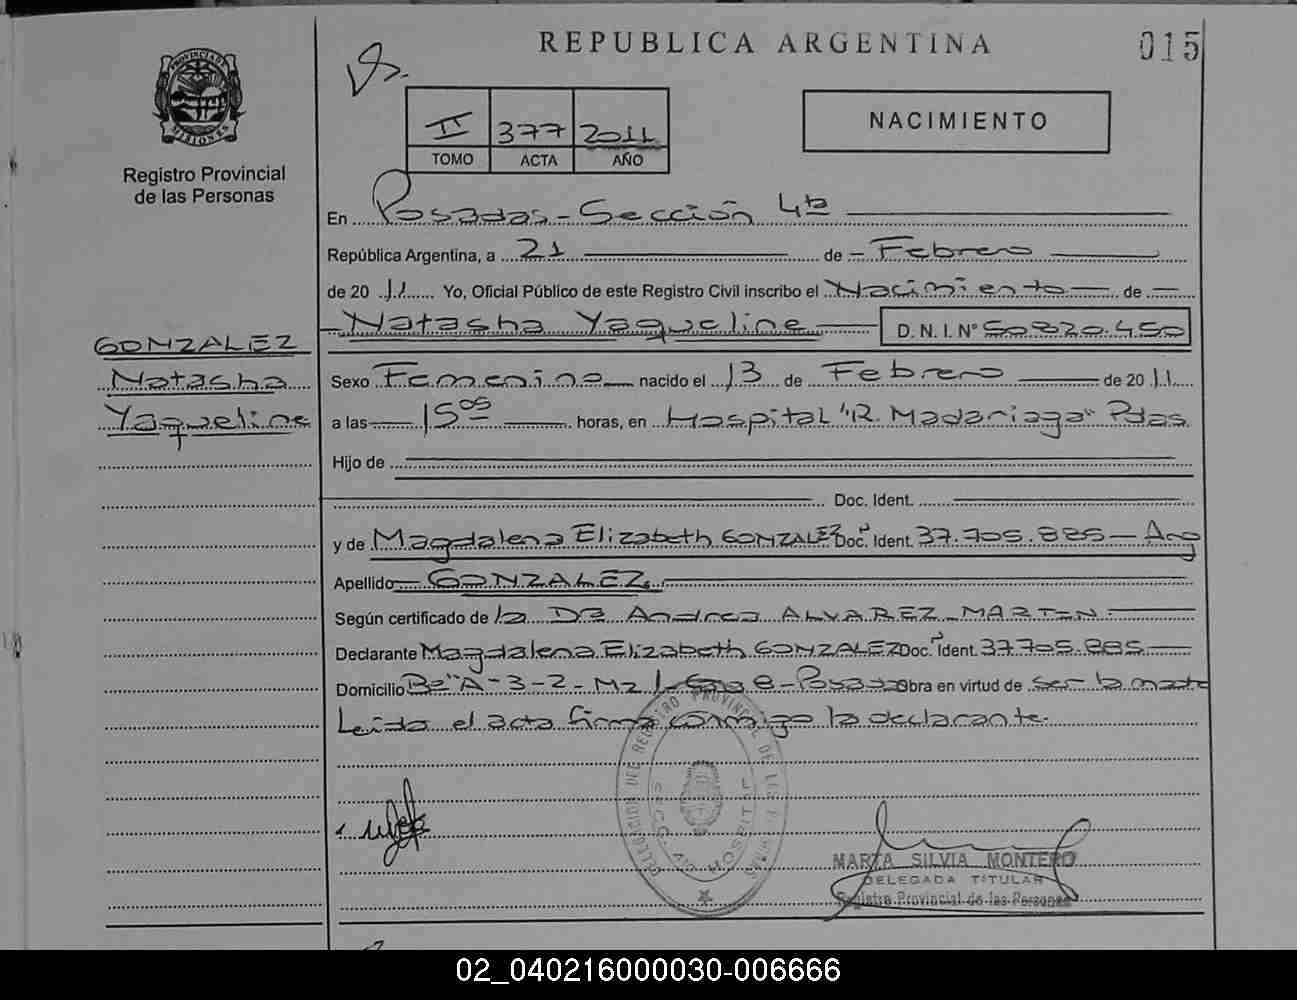 REPUBLICA ARGENTINA
015
PROVINCIA DE MISIONES
Registro Provincial
de las Personas
II 377 2011
TOMO ACTA AÑO
NACIMIENTO
En Posadas - Sección 4ta
República Argentina, a 21 de - Febrero
de 20 11 Yo, Oficial Público de este Registro Civil inscribo el Nacimiento de
Natasha Yaqueline D.N.I.N° 50.820.450
GONZALEZ
Natasha
Yaqueline
Sexo Femenino nacido el 13 de Febrero de 20 11
a las 15 05 horas, en Hospital "R. Madariaga" Pdas
Hijo de
Doc. Ident.
y de Magdalena Elizabeth GONZALEZ Doc. Ident. 37.705.885 - Arg
Apellido GONZALEZ
Según certificado de la DRA Andrea ALVAREZ MARTIN
Declarante Magdalena Elizabeth GONZALEZ Doc. Ident. 37.705.885
Domicilio Bº "A-3-2- Mz 8 - Posadas Obra en virtud de ser la madre
Leida el acta firma conmigo la declarante.
DELEGACION DEL REGISTRO PROVINCIAL DE LAS PERSONAS
MARTA SILVIA MONTERO
DELEGADA TITULAR
Registro Provincial de las Personas
02_040216000030-006666